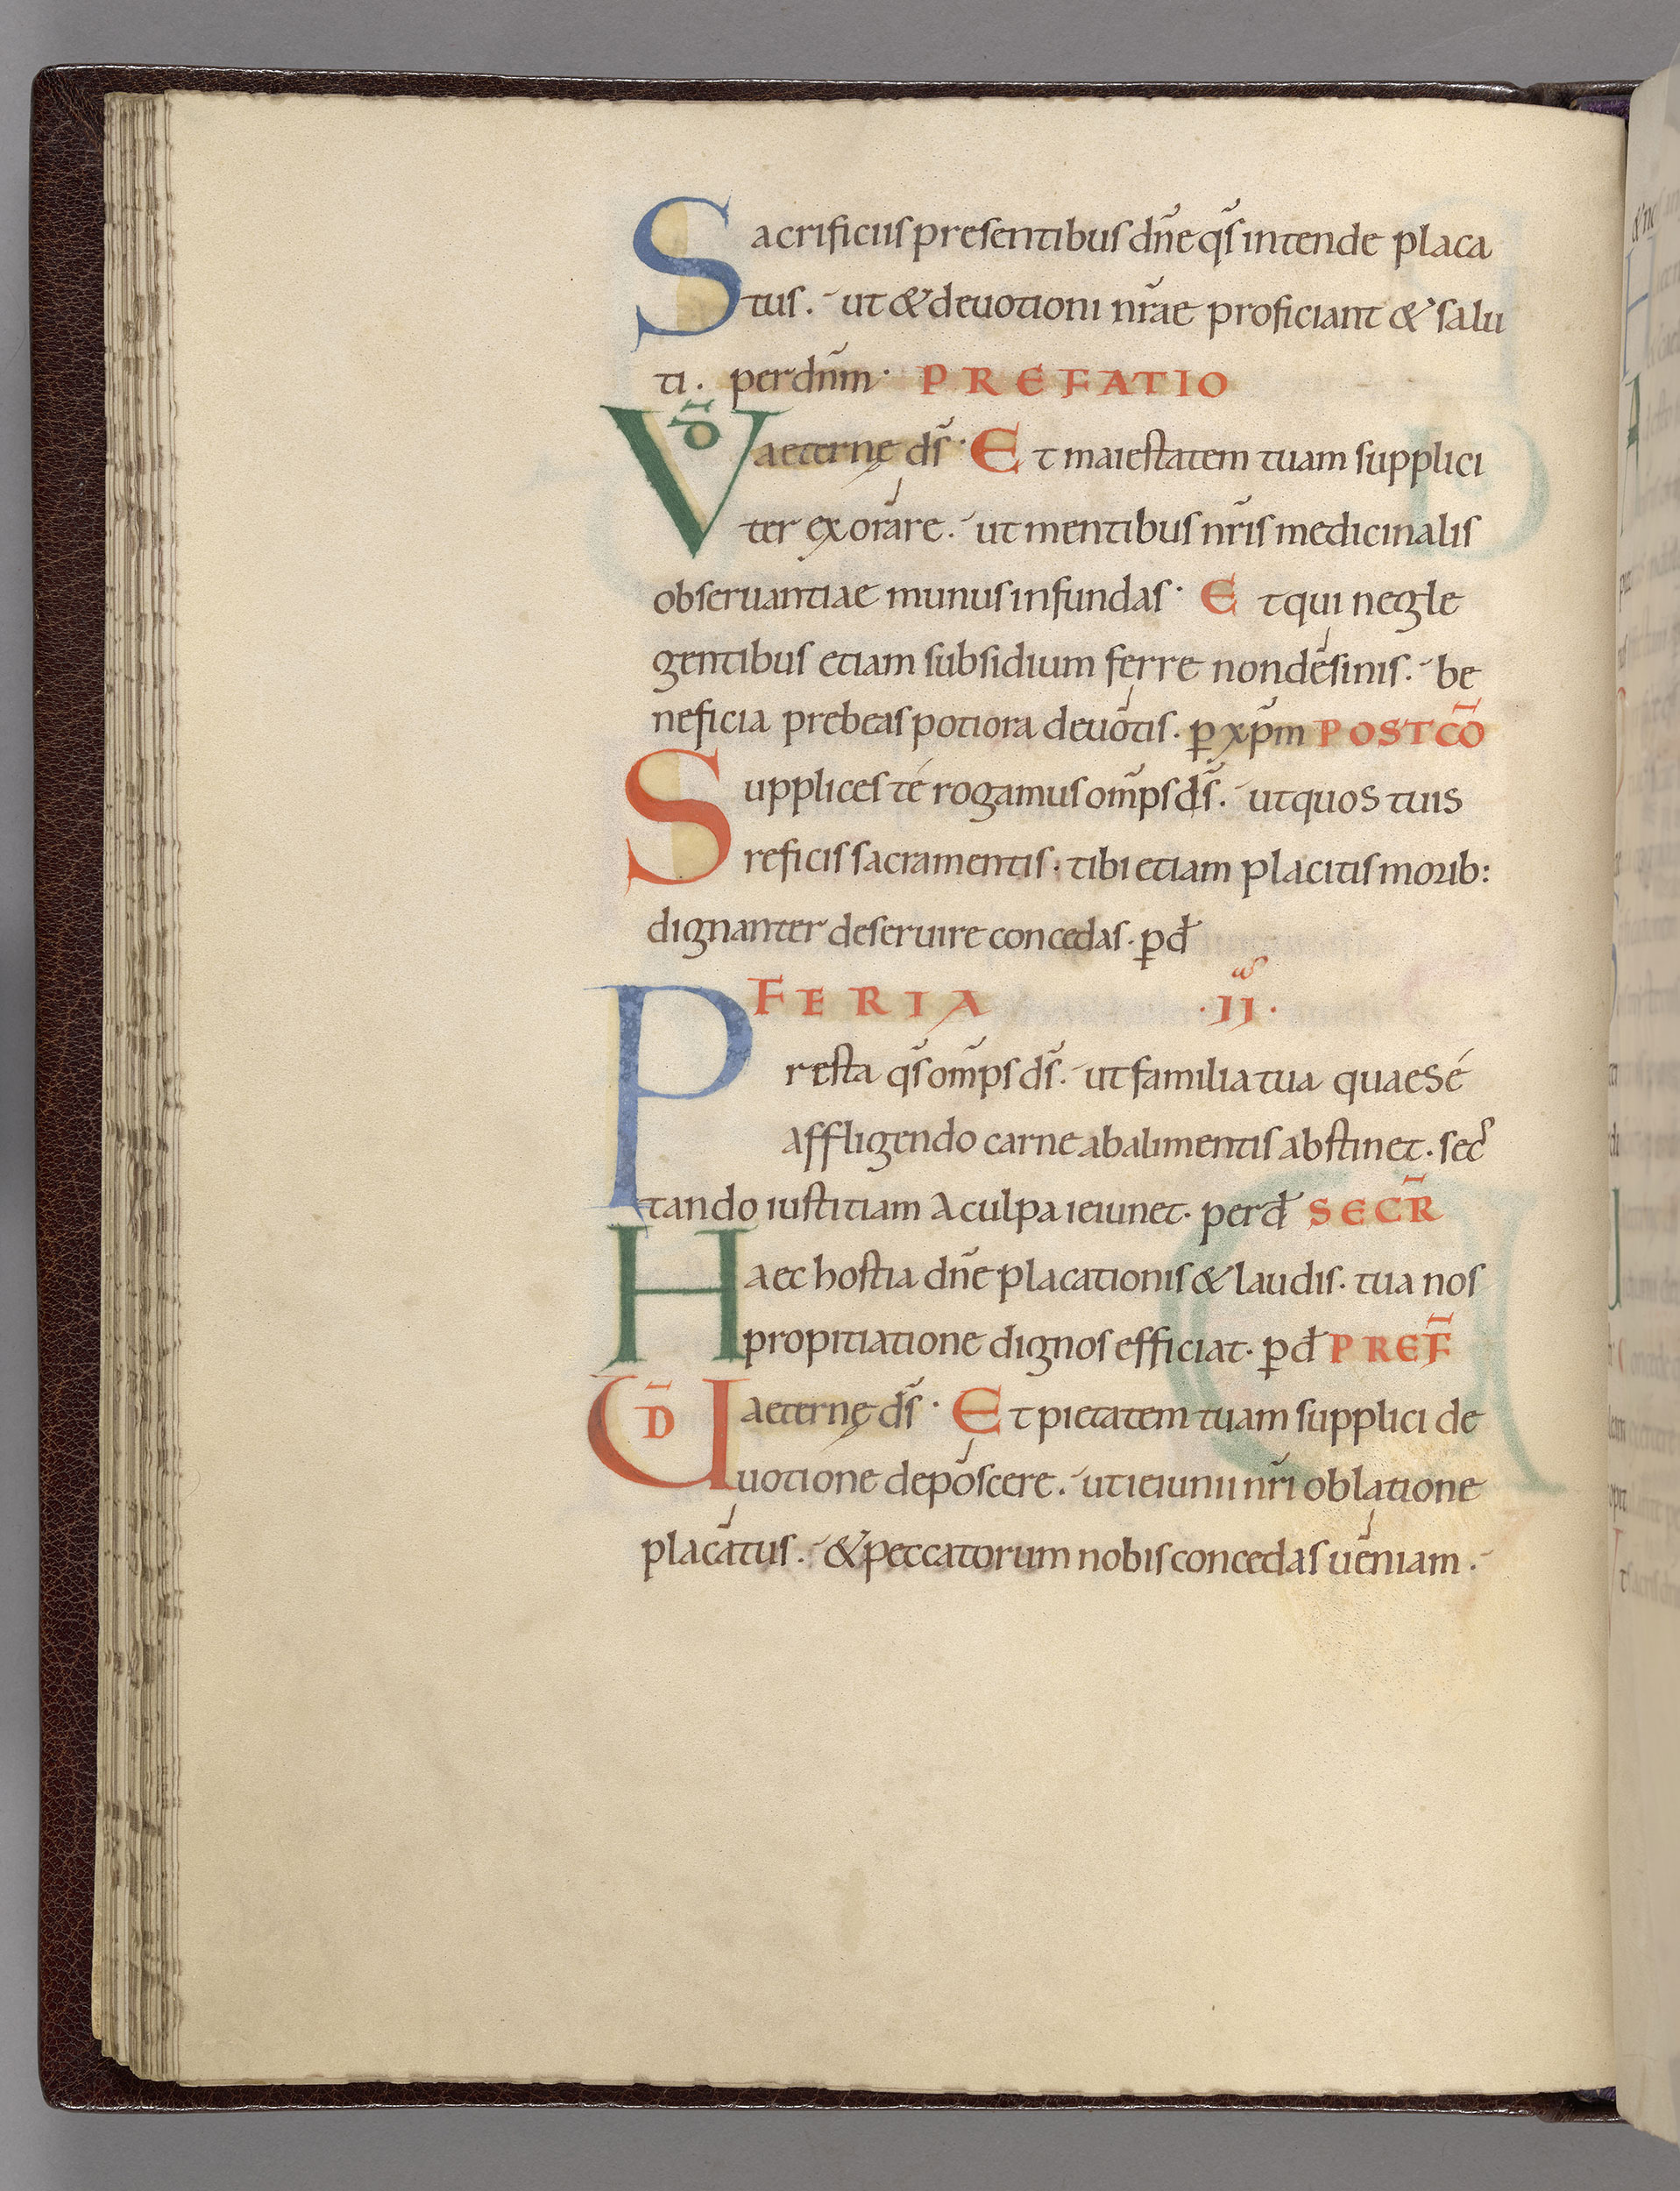 Sacrificiis presentibus dn̄e qs̄ intende placa
tus. ut & deuotioni nr̄ae proficiant & salu
ti. per dn̄m· PREFATIO
VD̄ aeternę ds̄· Et maiestatem tuam supplici
ter exorare. ut mentibus nr̄is medicinalis
obseruantiae munus infundas· Et qui negle
gentibus etiam subsidium ferre non desinis. be
neficia prebeas potiora deuotis. p̱ xp̄m POSTCŌ
Supplices té rogamus om̄ps ds̄. ut quos tuis
reficis sacramentis. tibi etiam placitis morib:
dignanter deseruire concedas. p̱ đ
FERIA ·IIª·
Presta qs̄ om̄ps ds̄. ut familia tua quae sé
affligendo carne ab alimentis abstinet. sec̄
tando iustitiam a culpa ieiunet. per đ SECR̄
Haec hostia dn̄e placationis & laudis. tua nos
propitiatione dignos efficiat. p̱ đ PREF̄
UD̄ aeternę ds̄· Et pietatem tuam supplici de
uotione deposcere. ut ieiunii nr̄i oblatione
placatus. & peccatorum nobis concedas ueniam.